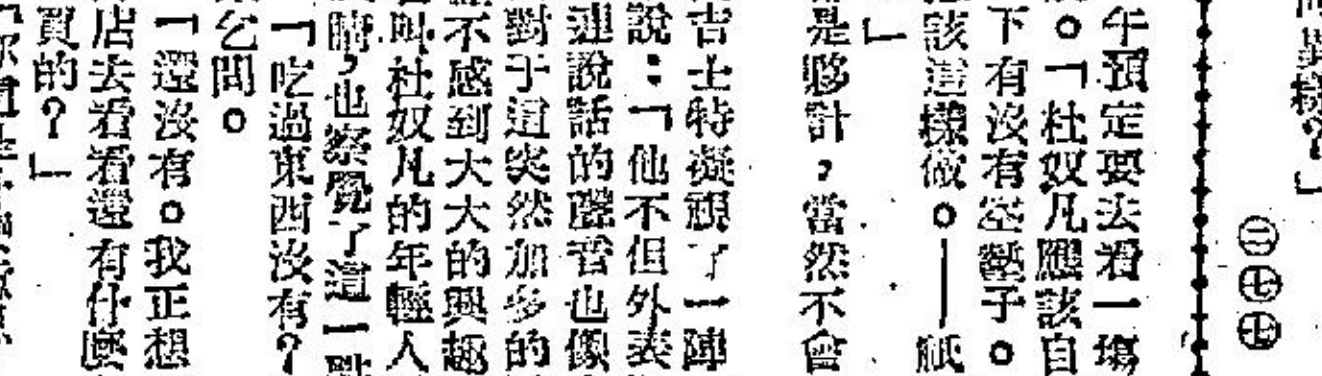 異樣？」
㊁㊆㊆
午預定要去看一塲
。「杜奴凡應該自
下有沒有空鑿子。
該這樣做。——祇
」
是夥計，當然不會
吉士特凝視了一陣
說：「他不但外表
連說話的聲音也像
對于這突然加多的
不感到大大的興趣
叫杜奴凡的年輕人
睛，也察覺了這一點
「吃過東西沒有？
乞問。
「還沒有。我正想
店去看看還有什麼
買的？」